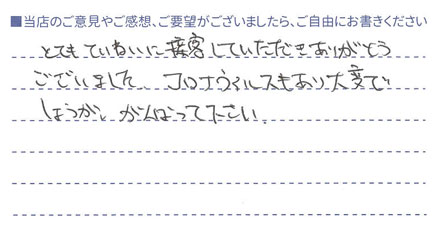 ■当店のご意見やご感想、ご要望がございましたら、ご自由にお書きください
とてもていねいに接客していただきありがとう
ございました。コロナウィルスもあり大変で
しょうが、がんばって下さい。